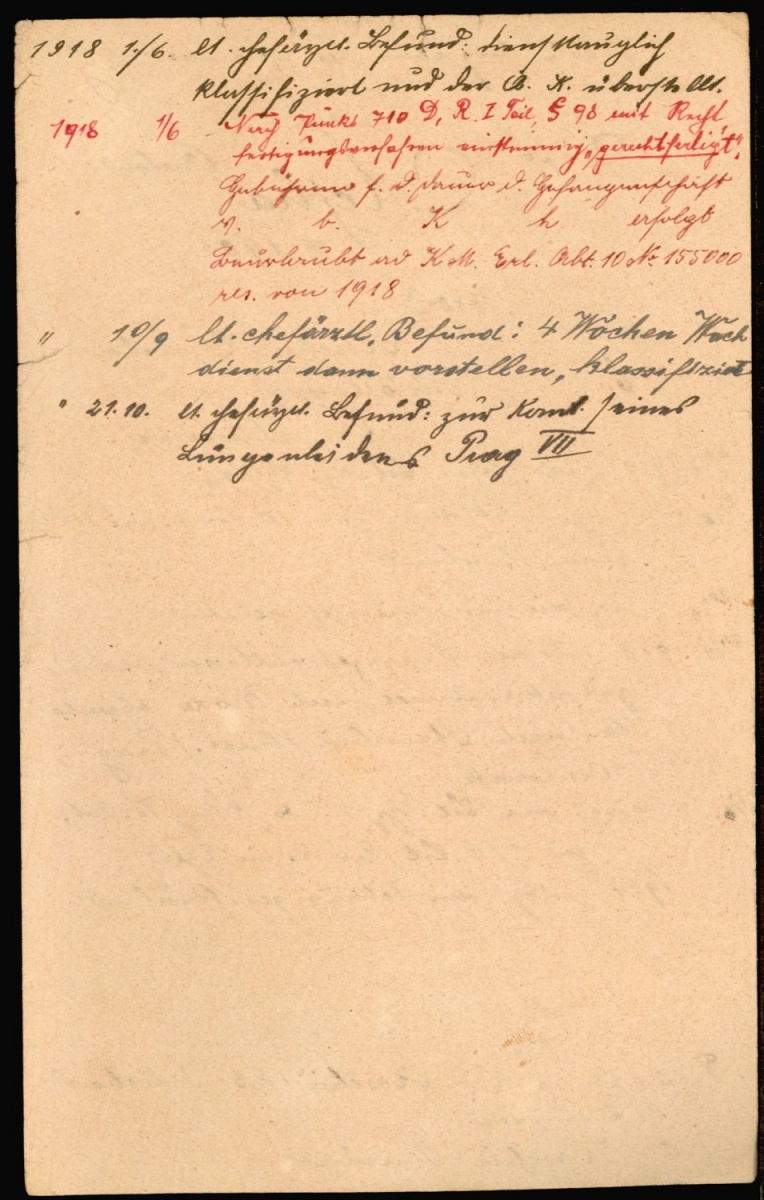 1918 1./6. lt. chefärztl. Befund: diensttauglich
klassifiziert und der A. K. überstellt.
1918 1/6 Nach Punkt 710 D, R. I Teil, § 98 mit Recht
fertigungsverfahren einstimmig „gerechtfertigt".
Gebühren f. d. Dauer d. Gefangenschaft
v. b. K h erfolgt
Beurlaubt ad K.M. Erl. Abt. 10 № 155000
res. von 1918
" 10/9 lt. chefärztl. Befund: 4 Wochen Wach
dienst dann vorstellen, klassifiziert
" 21.10. lt. chefärztl. Befund: zur Konst. seines
Lungenleidens Prag VII